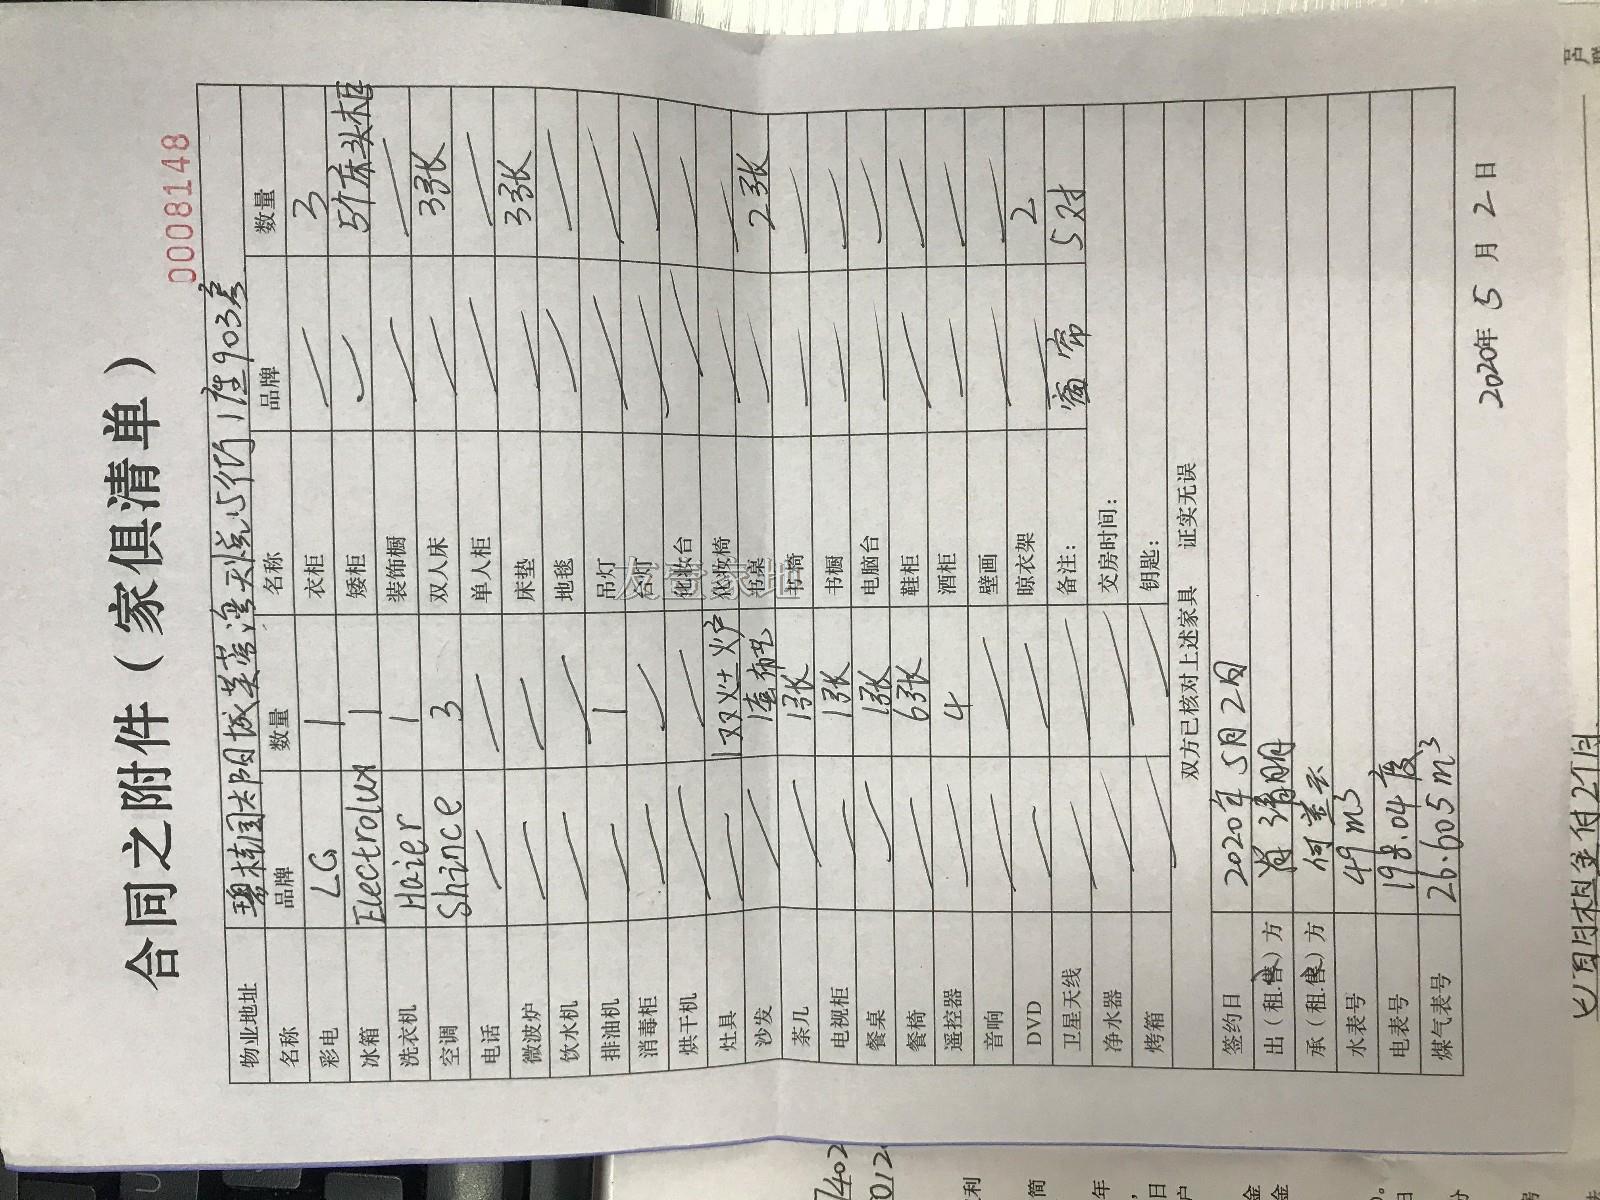 合同之附件（家俱清单）
0008148
物业地址 碧桂园太阳城芙蓉湾天悦心街1座903房
名称 品牌 数量 名称 品牌 数量
彩电 LG 1 衣柜 / 3
冰箱 Electrolux 1 矮柜 / 5个床头柜
洗衣机 Haier 1 装饰橱 / /
空调 Shince 3 双人床 / 3张
电话 / / 单人柜 / /
微波炉 / / 床垫 / 3张
饮水机 / / 地毯 / /
排油机 / 1 吊灯 / /
消毒柜 / / 台灯 / /
烘干机 / / 化妆台 / /
灶具 / 1双灶炉 化妆椅 / /
沙发 / 1套布艺 书桌 / 2张
茶几 / 1张 书椅 / /
电视柜 / 1张 书橱 / /
餐桌 / 1张 电脑台 / /
餐椅 / 6张 鞋柜 / /
遥控器 / 4 酒柜 / /
音响 / / 壁画 / /
DVD / / 晾衣架 / 2
卫星天线 / / 备注： 窗帘 5对
净水器 / / 交房时间：
烤箱 / / 钥匙：
双方已核对上述家具 证实无误
签约日 2020年5月2日
出（租.售）方
承（租.售）方
水表号 49m3
电表号 198.04度
煤气表号 26.605m3
2020年5月2日